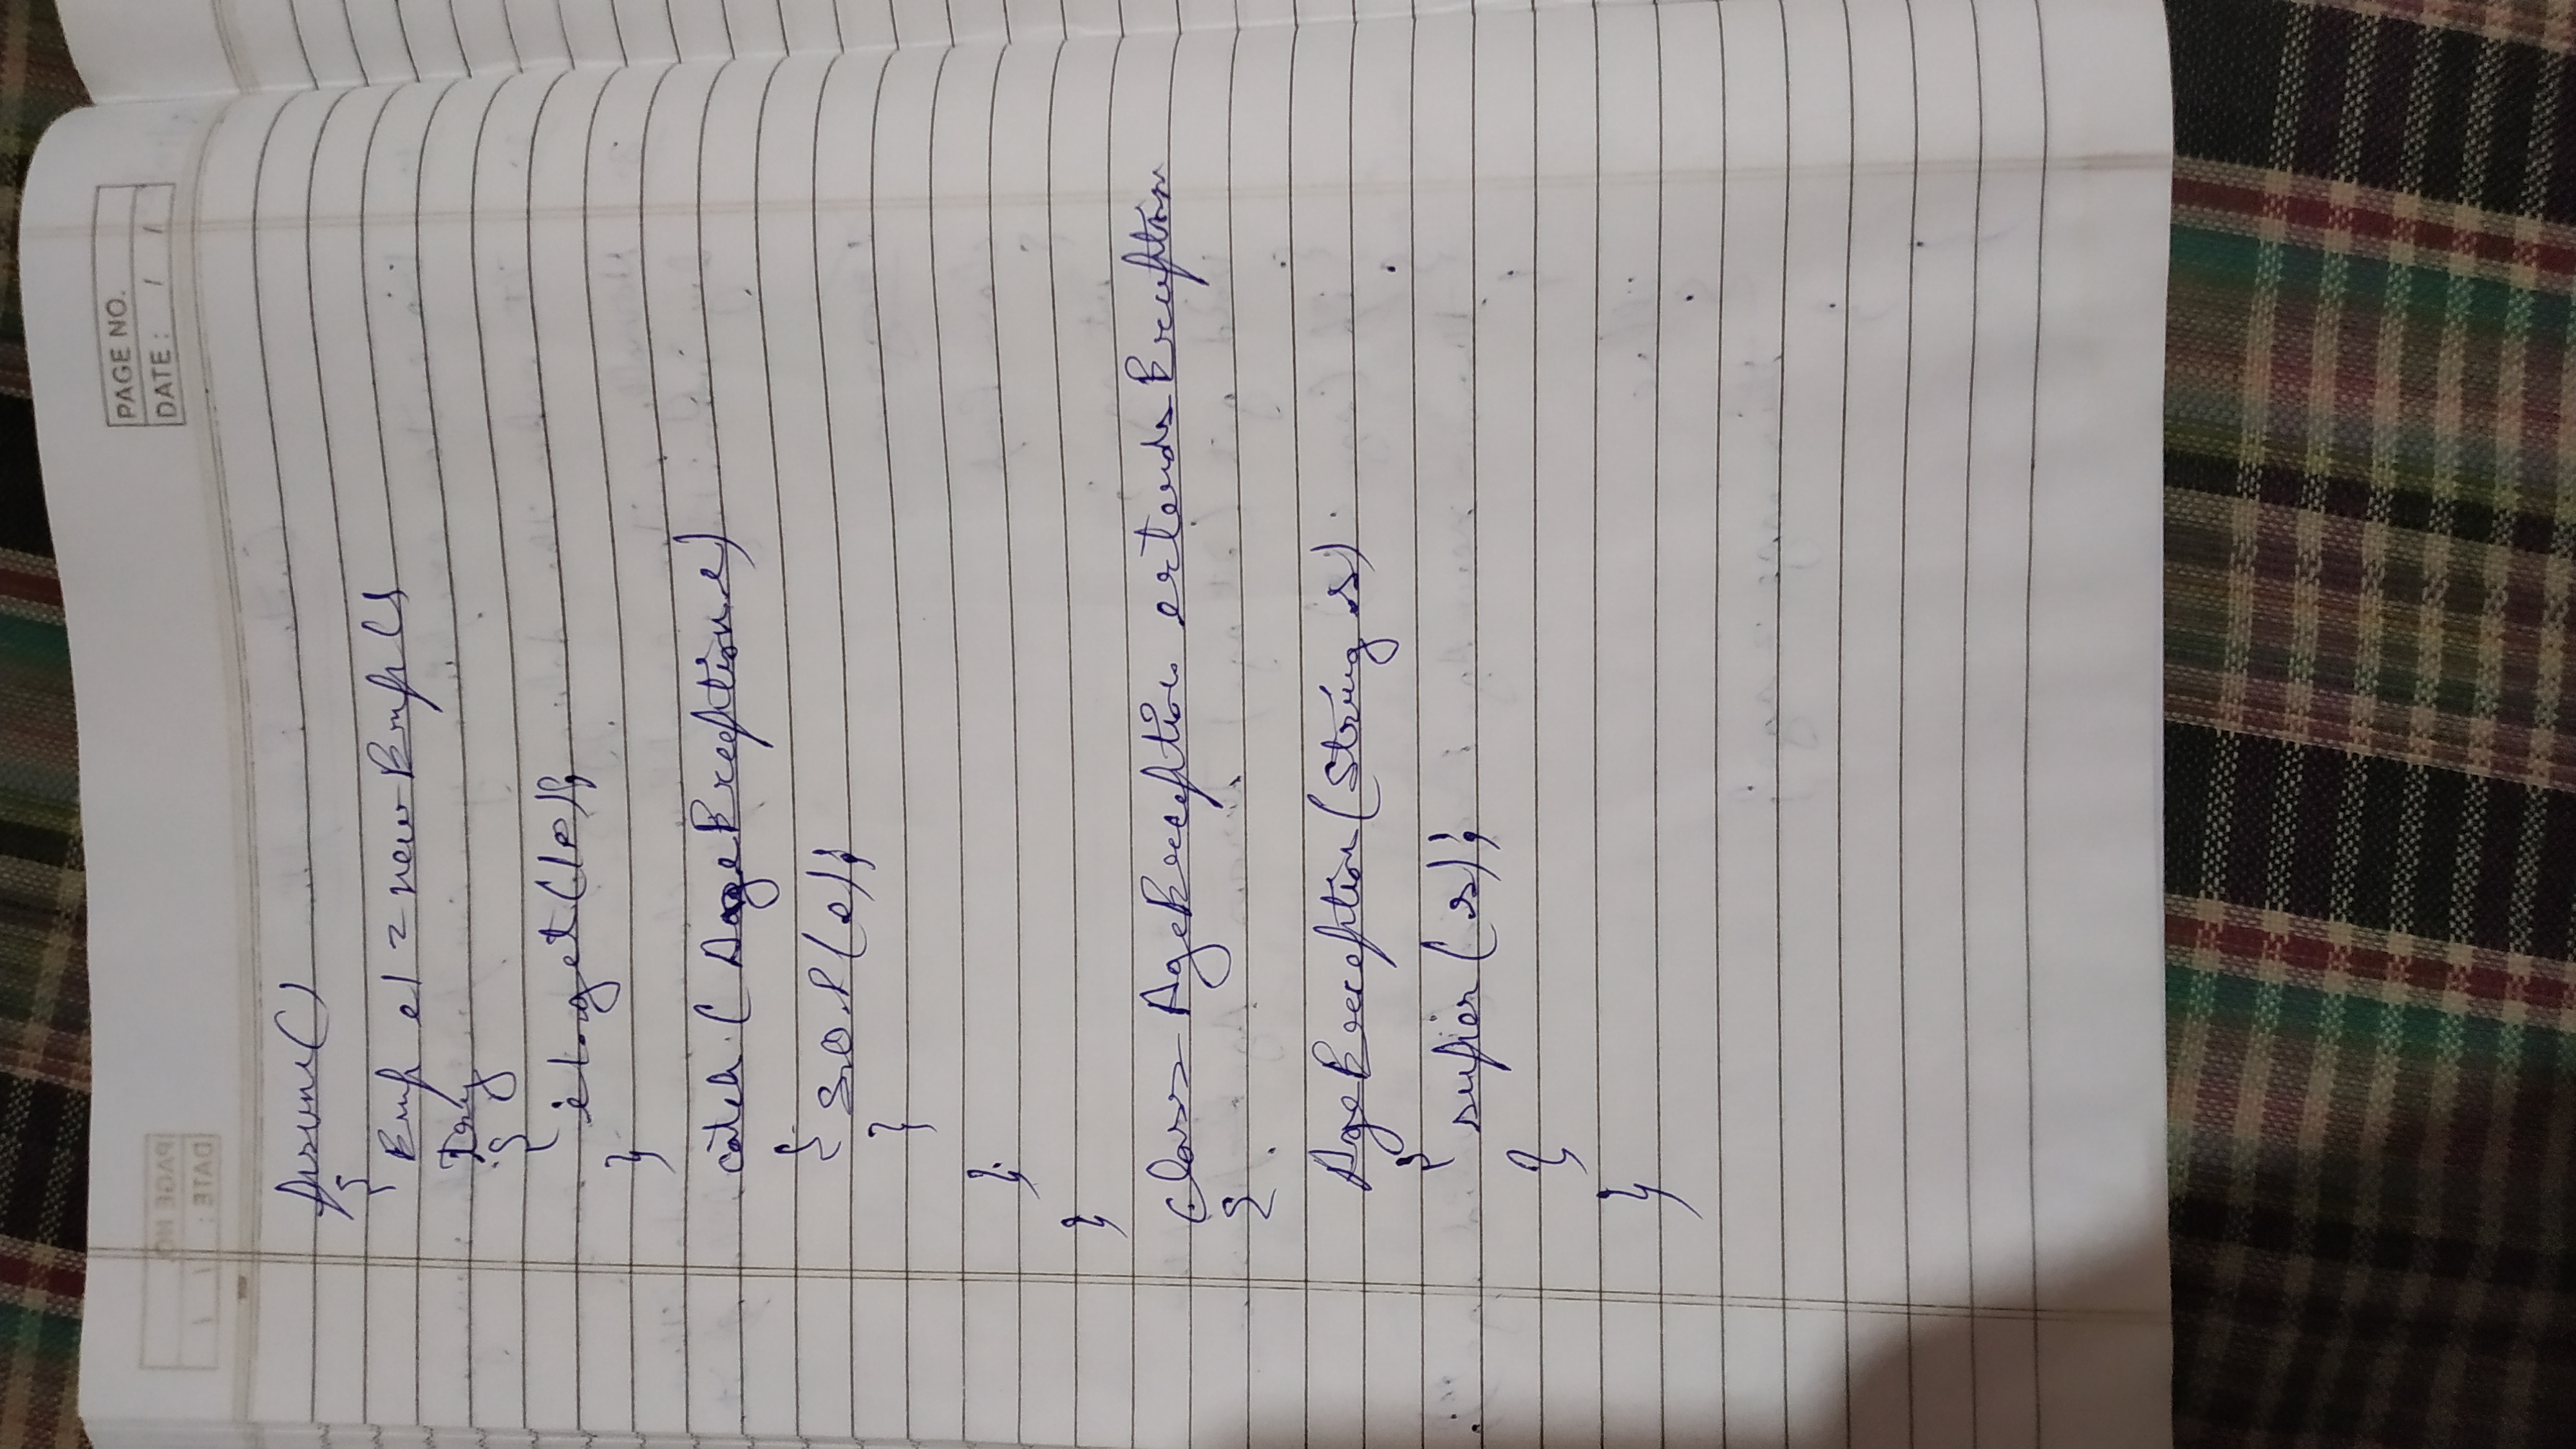 PAGE NO.
DATE: / /
psvm()
{
Emp e1 = new Emp();
Try
{
e1.get(10);
}
catch (AgeException e)
{
S.O.P(e);
}
}
}
class AgeException extends Exception
{
AgeException (String s)
{
super(s);
}
}